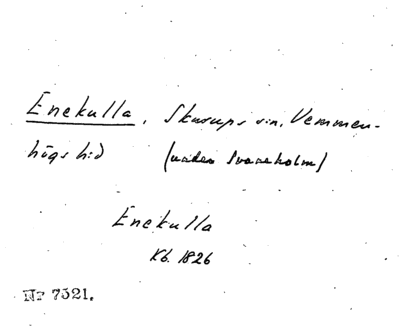 Enekulla, Skurups s:n, Vemmen-
högs hd (under Svaneholm)
Enekulla
Kb. 1826
Nr 7321.